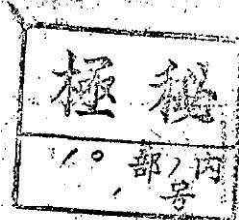 極秘
10部ノ内
号